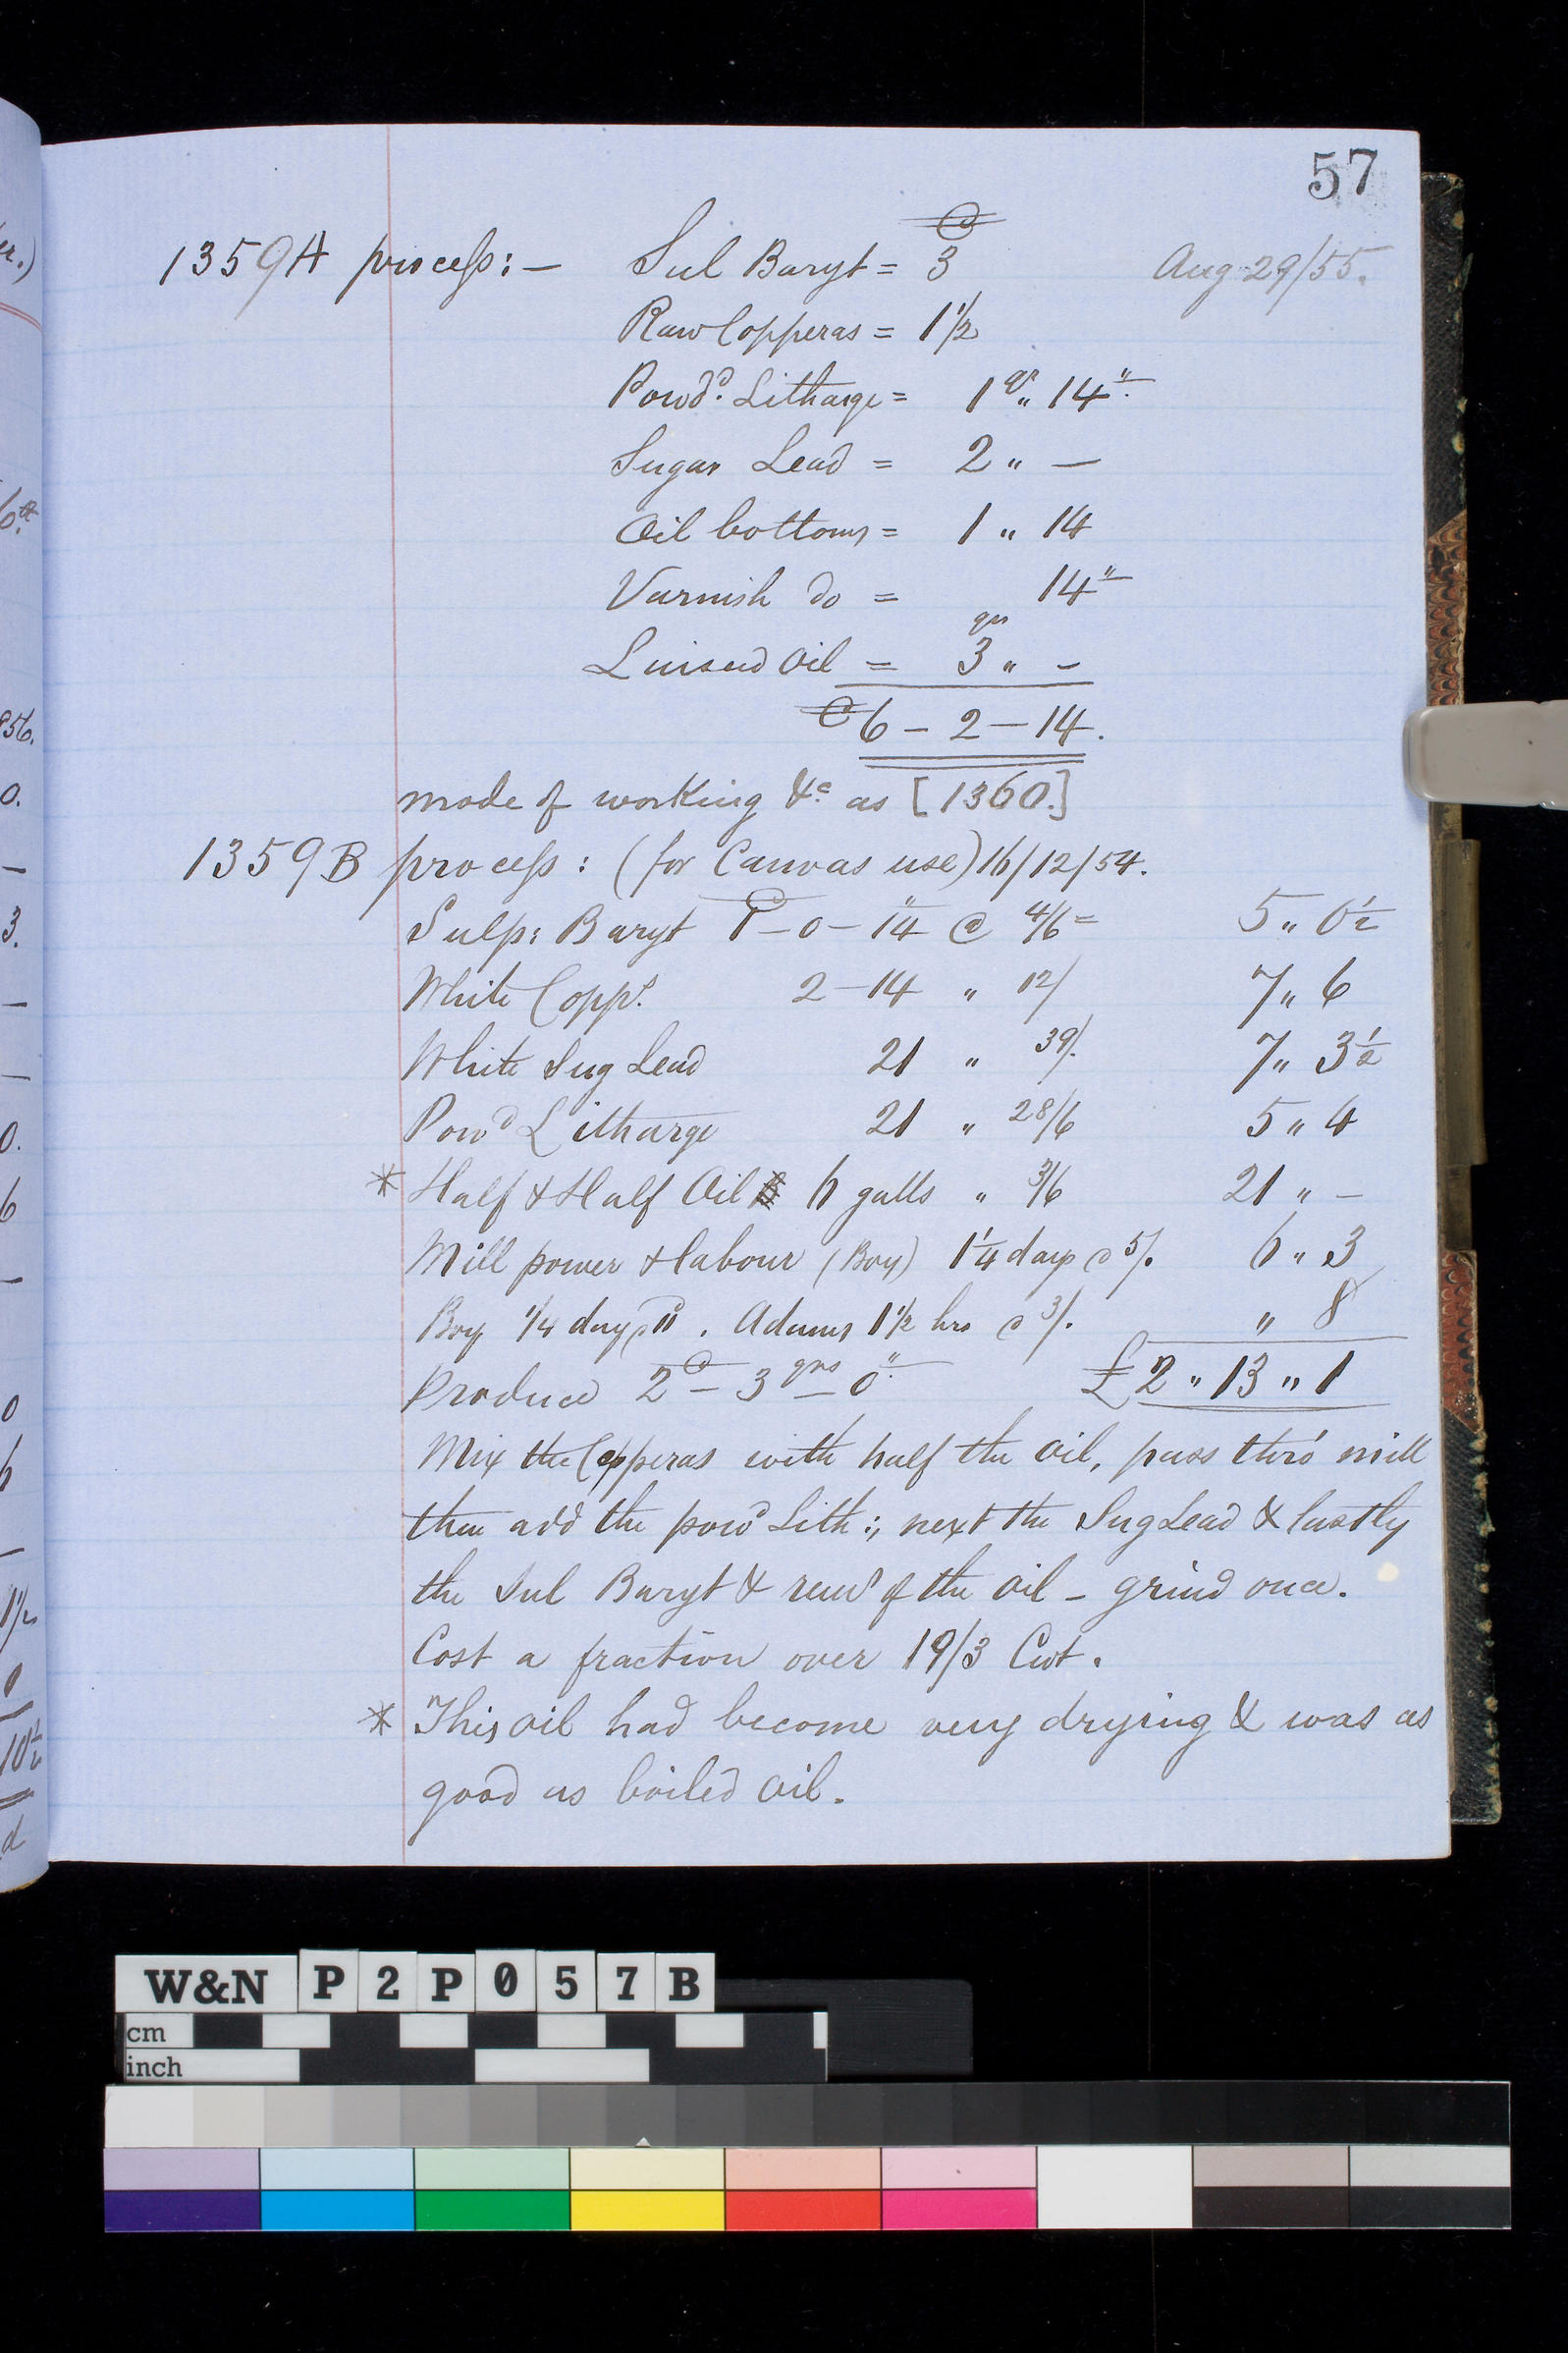 57
1359A process:— Sul Baryt = 3 Aug 29/55.
Raw Copperas = 1½
Powdd. Litharge = 1 qr " 14 "
Sugar Lead = 2 " —
Oil bottoms = 1 " 14
Varnish do = 14 "
Linseed Oil = 3 qrs " –
C 6 – 2 – 14.
mode of working &c as [1360.]
1359B process: (for Canvas use) 16/12/54.
Sulp: Baryt 1 – 0 – 14 @ 4/6 = 5 " 0½
White Copps. 2 – 14 " 12/ 7 " 6
White Sug Lead 21 " 39/. 7 " 3½
Powd Litharge 21 " 28/6 5 " 4
* Half & Half Oil 6 galls " 3/6 21 " –
Mill power & labour (Boy) 1¼ days @ 5/. 6 " 3
Boy ¼ day @ 11. Adams 1½ hrs @ 3/. " 8
Produce 2 C – 3 qrs – 0 " £2 " 13 " 1
Mix the Copperas with half the oil, pass thro' mill
then add the powd Lith:, next the Sug Lead & lastly
the Sul Baryt & remd of the oil – grind once.
Cost a fraction over 19/3 Cwt.
* This oil had become very drying & was as
good as boiled oil.
er.)
856.
0.
—
3.
—
—
0.
6
—
0
6
—
1½
0
10½
d
W&N P2P057B
cm
inch